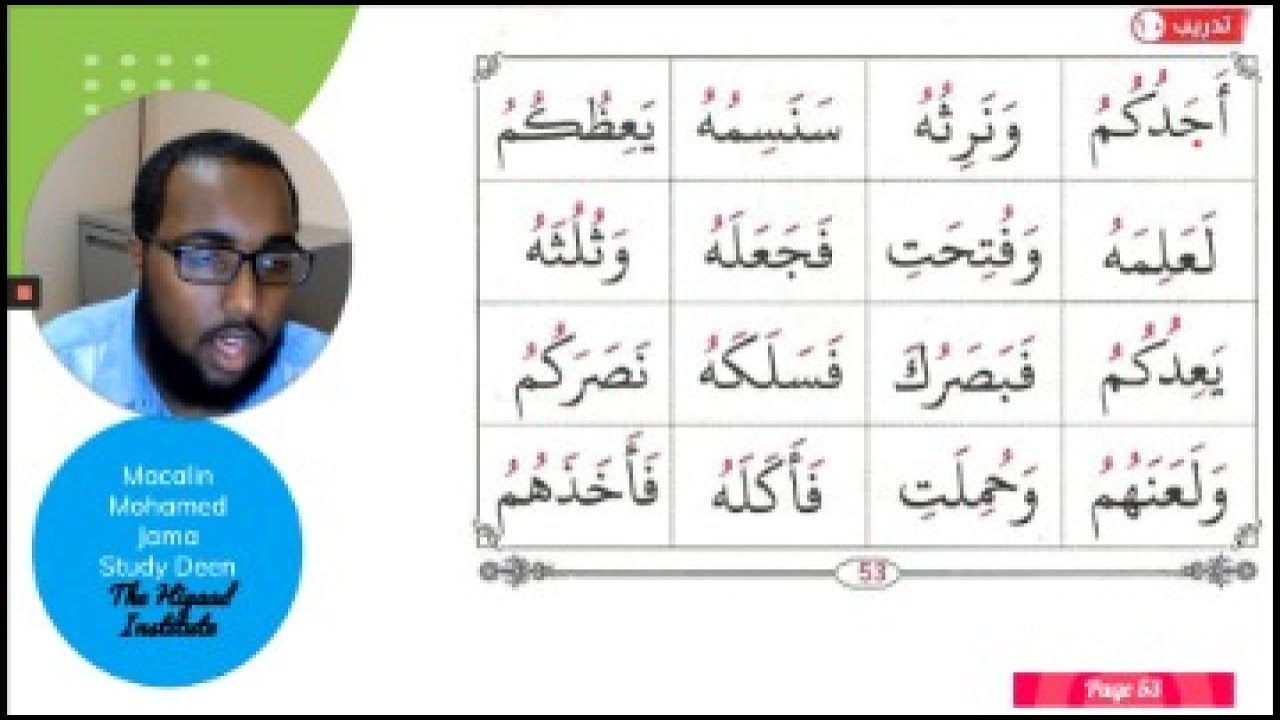 تدريب ١٠
أَجَدُكُمُ وَنَرِثُهُ سَنَسِمُهُ يَعِظُكُمُ
لَعَلِمَهُ وَفُتِحَتِ فَجَعَلَهُ وَثُلُثَهُ
يَعِدُكُمُ فَبَصَرُكَ فَسَلَكَهُ نَصَرَكُمُ
وَلَعَنَهُمُ وَحُمِلَتِ فَأَكَلَهُ فَأَخَذَهُمُ
53
Macalin
Mohamed
Jama
Study Deen
The Higaad
Institute
Page 53